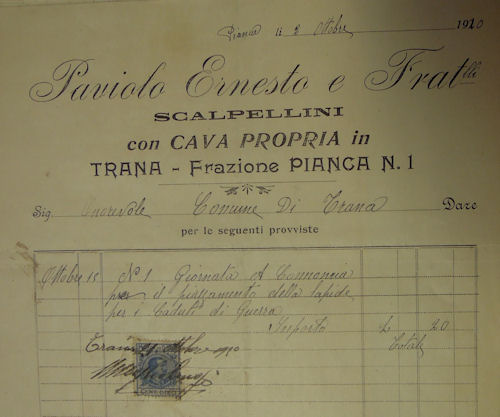 Pianca li 2 Ottobre 1920
Paviolo Ernesto e Fratelli
SCALPELLINI
con CAVA PROPRIA in
TRANA - Frazione PIANCA N. 1
Sig. Onorevole Comune Di Trana Dare
per le seguenti provviste
Ottobre 15 N° 1 Giornata
il piazzamento della lapide
per i Caduti di Guerra
Importo £ 20
Totale
Trana Ottobre